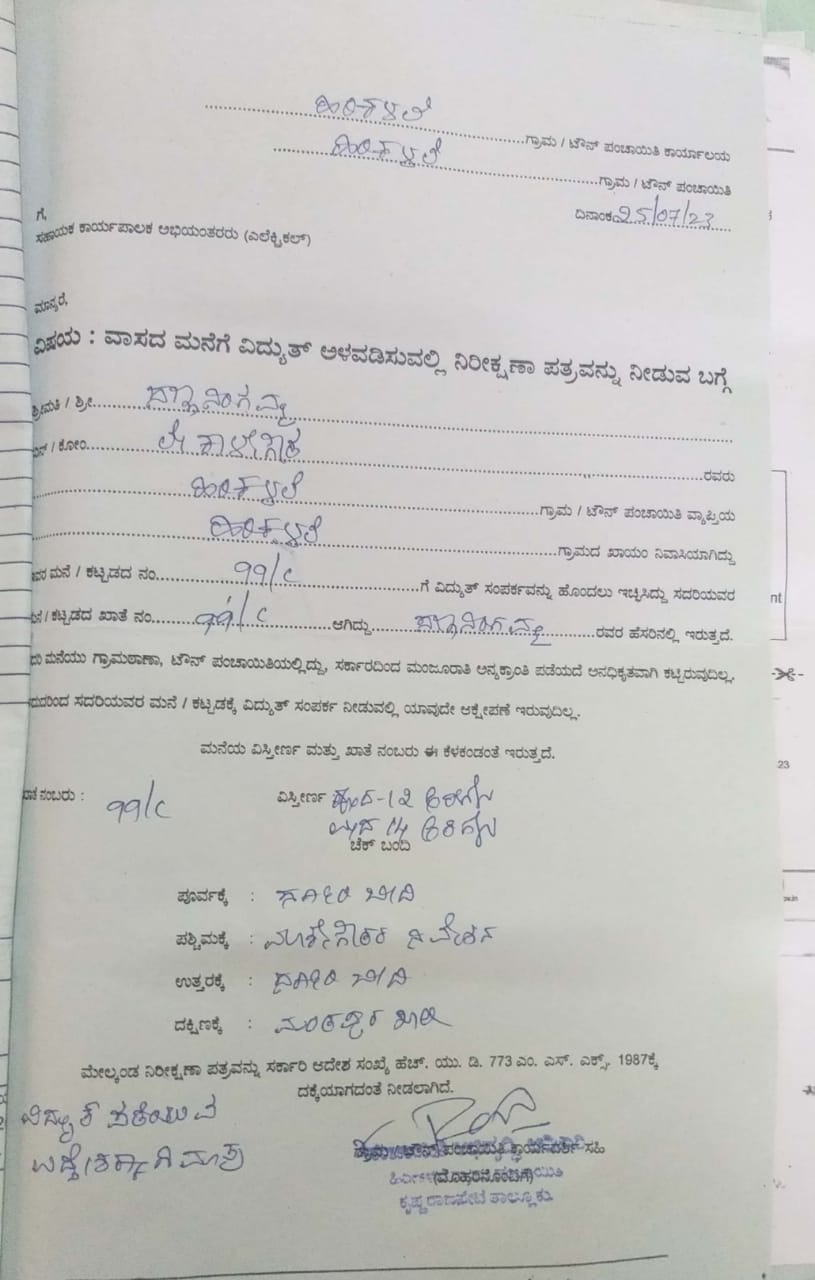 ಹಿರಿಕಳಲೆ ಗ್ರಾಮ / ಟೌನ್ ಪಂಚಾಯಿತಿ ಕಾರ್ಯಾಲಯ
ಹಿರಿಕಳಲೆ ಗ್ರಾಮ / ಟೌನ್ ಪಂಚಾಯಿತಿ
ದಿನಾಂಕ 25/07/23
ಗೆ,
ಸಹಾಯಕ ಕಾರ್ಯಪಾಲಕ ಅಭಿಯಂತರರು (ಎಲೆಕ್ಟ್ರಿಕಲ್)
ಮಾನ್ಯರೆ,
ವಿಷಯ : ವಾಸದ ಮನೆಗೆ ವಿದ್ಯುತ್ ಅಳವಡಿಸುವಲ್ಲಿ ನಿರೀಕ್ಷಣಾ ಪತ್ರವನ್ನು ನೀಡುವ ಬಗ್ಗೆ
ಶ್ರೀಮತಿ / ಶ್ರೀ
ಬಿನ್ / ಕೋಂ ಲೇ ಕಾಳೇಗೌಡ ರವರು
ಹಿರಿಕಳಲೆ ಗ್ರಾಮ / ಟೌನ್ ಪಂಚಾಯಿತಿ ವ್ಯಾಪ್ತಿಯ
ಹಿರಿಕಳಲೆ ಗ್ರಾಮದ ಖಾಯಂ ನಿವಾಸಿಯಾಗಿದ್ದು
ಮನೆ / ಕಟ್ಟಡದ ನಂ. 99/C ಗೆ ವಿದ್ಯುತ್ ಸಂಪರ್ಕವನ್ನು ಹೊಂದಲು ಇಚ್ಛಿಸಿದ್ದು ಸದರಿಯವರ
/ ಕಟ್ಟಡದ ಖಾತೆ ನಂ. 99/C ಆಗಿದ್ದು ರವರ ಹೆಸರಿನಲ್ಲಿ ಇರುತ್ತದೆ.
ಮನೆಯು ಗ್ರಾಮಠಾಣಾ, ಟೌನ್ ಪಂಚಾಯಿತಿಯಲ್ಲಿದ್ದು, ಸರ್ಕಾರದಿಂದ ಮಂಜೂರಾತಿ ಅನ್ಯಕ್ರಾಂತಿ ಪಡೆಯದೆ ಅನಧಿಕೃತವಾಗಿ ಕಟ್ಟಿರುವುದಿಲ್ಲ.
ಸದರಿಯವರ ಮನೆ / ಕಟ್ಟಡಕ್ಕೆ ವಿದ್ಯುತ್ ಸಂಪರ್ಕ ನೀಡುವಲ್ಲಿ ಯಾವುದೇ ಆಕ್ಷೇಪಣೆ ಇರುವುದಿಲ್ಲ.
ಮನೆಯ ವಿಸ್ತೀರ್ಣ ಮತ್ತು ಖಾತೆ ನಂಬರು ಈ ಕೆಳಕಂಡಂತೆ ಇರುತ್ತದೆ.
ನಂಬರು : 99/C ವಿಸ್ತೀರ್ಣ
ಚೆಕ್ ಬಂದಿ
ಪೂರ್ವಕ್ಕೆ : ಸರ್ಕಾರಿ ಬೀದಿ
ಪಶ್ಚಿಮಕ್ಕೆ : ನಿವೇಶನ
ಉತ್ತರಕ್ಕೆ : ಸರ್ಕಾರಿ ಬೀದಿ
ದಕ್ಷಿಣಕ್ಕೆ :
ಮೇಲ್ಕಂಡ ನಿರೀಕ್ಷಣಾ ಪತ್ರವನ್ನು ಸರ್ಕಾರಿ ಆದೇಶ ಸಂಖ್ಯೆ ಹೆಚ್. ಯು. ಡಿ. 773 ಎಂ. ಎಸ್. ಎಕ್ಸ್. 1987ಕ್ಕೆ
ದಕ್ಕೆಯಾಗದಂತೆ ನೀಡಲಾಗಿದೆ.
ವಿದ್ಯುತ್ ಪಡೆಯುವ
ಉದ್ದೇಶಕ್ಕಾಗಿ ಮಾತ್ರ
ಪಂಚಾಯಿತಿ ಕಾರ್ಯದರ್ಶಿ ಸಹಿ
(ಮೊಹರಿನೊಂದಿಗೆ)
ಕೃಷ್ಣರಾಜಪೇಟೆ ತಾಲ್ಲೂಕು.